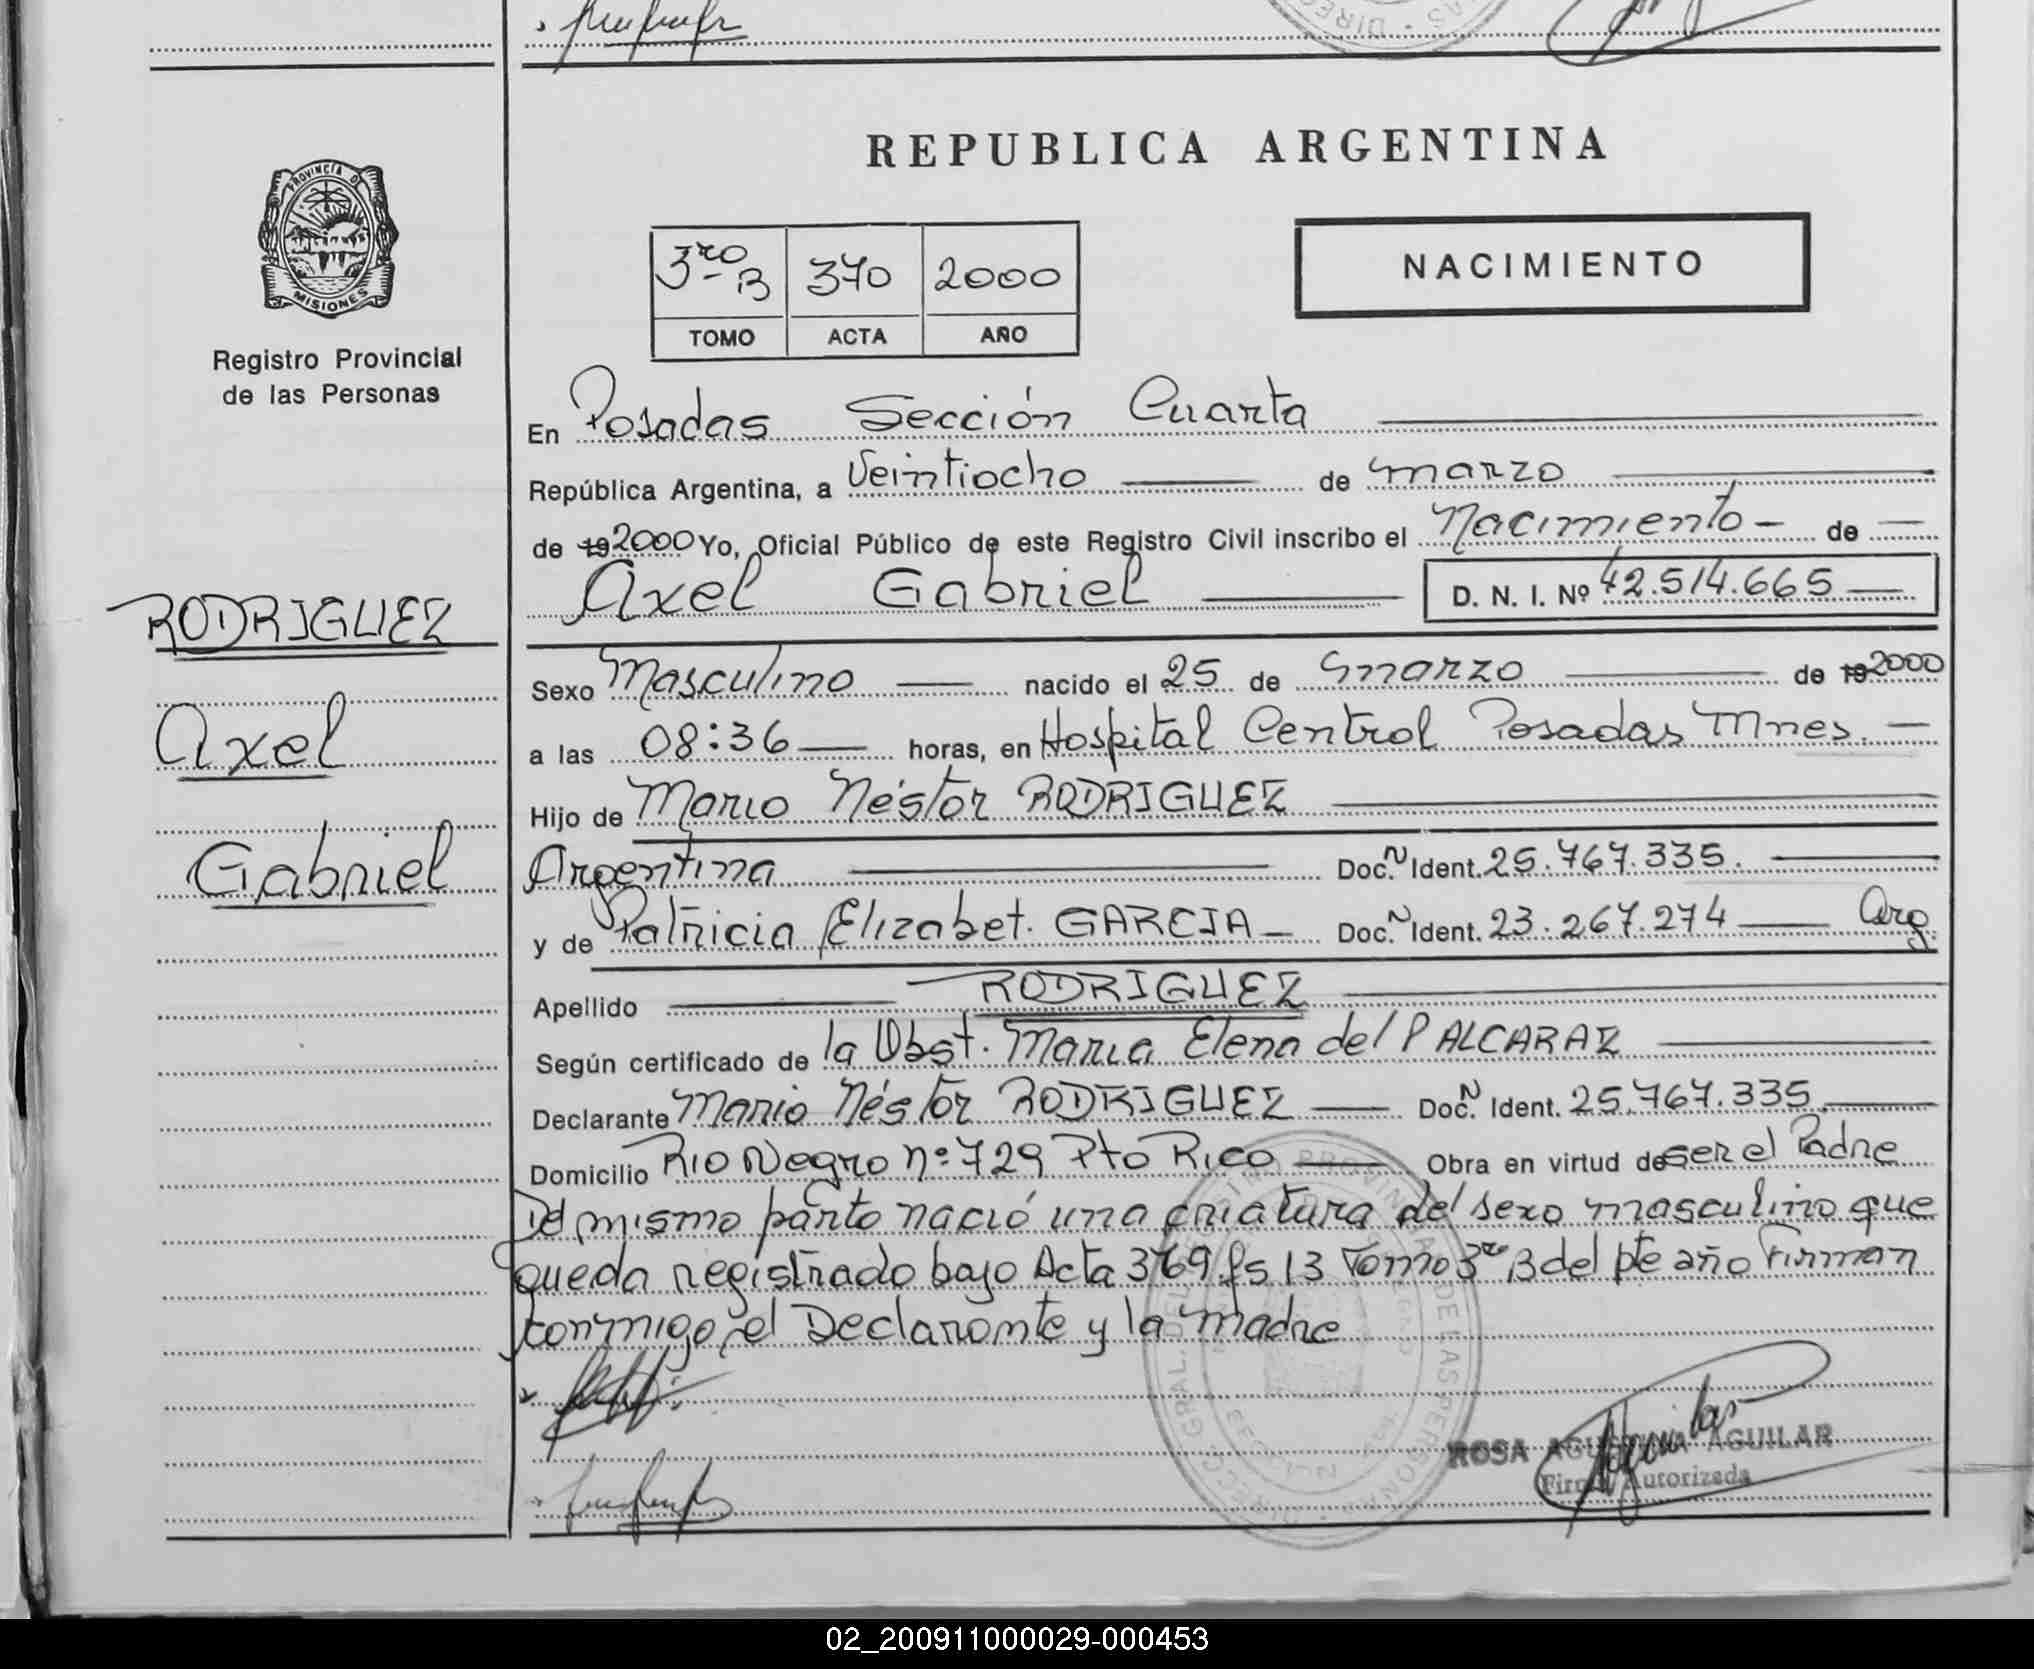 PROVINCIA DE
MISIONES
Registro Provincial
de las Personas
RODRIGUEZ
Axel
Gabriel
REPUBLICA ARGENTINA
3ro B 370 2000
TOMO ACTA AÑO
NACIMIENTO
En Posadas Sección Cuarta
República Argentina, a Veintiocho de marzo
de 19 2000 Yo, Oficial Público de este Registro Civil inscribo el Nacimiento - de
Axel Gabriel D. N. I. Nº 42.514.665
Sexo Masculino nacido el 25 de marzo de 19 2000
a las 08:36 horas, en Hospital Central Posadas Mnes.
Hijo de Mario Néstor RODRIGUEZ
Argentina Doc. N Ident. 25.767.335.
y de Patricia Elizabet. GARCIA Doc. N Ident. 23.267.274 Arg.
Apellido RODRIGUEZ
Según certificado de la Obst. Maria Elena del P ALCARAZ
Declarante Mario Néstor RODRIGUEZ Doc. N Ident. 25.767.335.
Domicilio Rio Negro nº 729 Pto Rico Obra en virtud de ser el Padre
Del mismo parto nació una criatura del sexo masculino que
queda registrado bajo Acta 369 fs 13 Tomo 3ro B del pte año Firman
conmigo el Declarante y la madre
ROSA AGUSTINA AGUILAR
Firma Autorizada
02_200911000029-000453